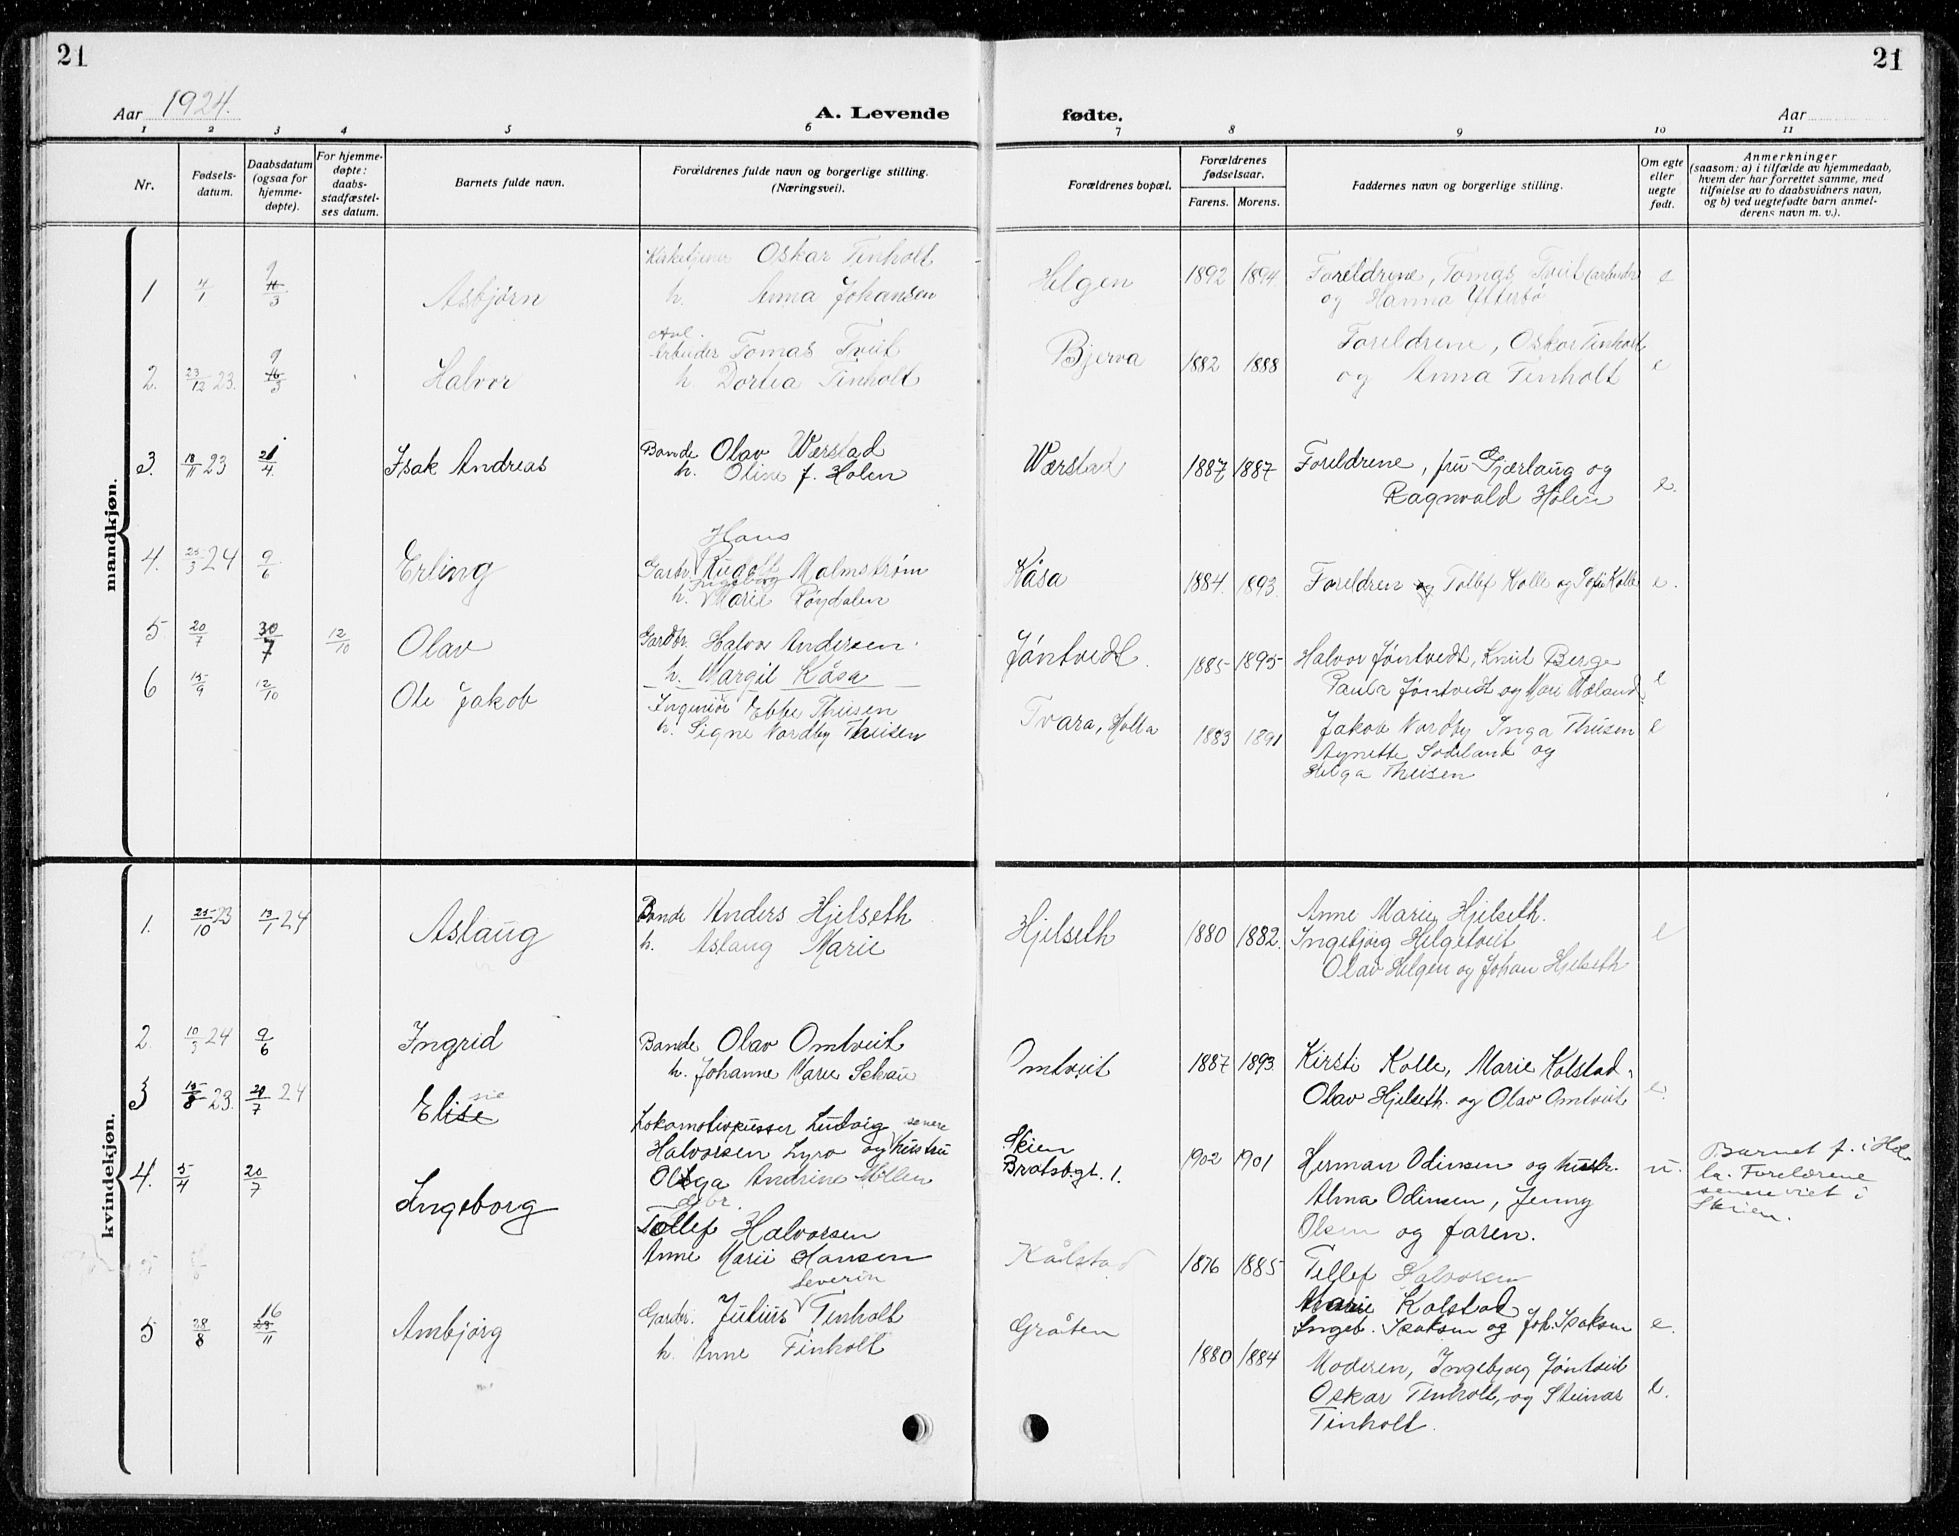 21
21
Aar 1924.
A. Levende
fødte.
Aar
1 2 3 4 5 6 7 8 9 10 11
Nr.
Fødsels-
datum.
Daabsdatum
(ogsaa for
hjemme-
døpte).
For hjemme-
døpte:
daabs-
stadfæstel-
ses datum.
Barnets fulde navn.
Forældrenes fulde navn og borgerlige stilling.
(Næringsvei).
Forældrenes bopæl.
Forældrenes
fødselsaar.
Farens. Morens.
Faddernes navn og borgerlige stilling.
Om egte
eller
uegte
født.
Anmerkninger
(saasom: a) i tilfælde av hjemmedaab,
hvem der har forrettet samme, med
tilføielse av to daabsvidners navn,
og b) ved uegtefødte barn anmel-
derens navn m. v.).
mandkjøn.
1 4/1 9/3 Asbjørn
Kirketjener Oskar Tinholt
h. Anna Johansen
Helgen 1892 1894
Foreldrene, Tomas Tveit (arbeider
og Hanna Ytterbø
e
2. 23/12 23. 9/3 Halvor
Arbeider Tomas Tveit
h. Dortea Tinholt
Bjerva 1882 1888
Foreldrene, Oskar Tinholt
og Anna Tinholt
e
3. 18/11 23 21/4 Isak Andreas
Bonde Olav Wærstad
h. Oline f. Holen
Wærstad 1887 1887
Foreldrene, fru Gjærlaug og
Ragnvald Holen
e.
4. 25/3 24 9/6 Erling
Hans
Garbr. Rudolf Malmstrøm
Ingeborg
h. Marie Røydalen
Kåsa 1884. 1893.
Foreldren og Tollef Kolle og Sofie Kolle
e.
5 20/7 30/7 12/10 Olav
Gardbr. Halvor Andersen
h. Margit Kåsa
Jøntvedt. 1885 1895
Halvor Jøntvedt, Knut Berge
Paula Jøntvedt og Mari Høland
e
6 15/9 12/10 Ole Jakob
Ingeniør Ebbe Thiisen
h. Signe Nordby Thiisen
Tvara, Holla 1883 1891
Jakob Nordby Inga Thiisen
Agnette og
Helga Thiisen
e
kvindekjøn.
1. 25/10 23 13/1 24 Aslaug
Bonde Anders Hjelseth
h. Aslaug Marie
Hjelseth 1880 1882.
Anne Marie Hjelseth.
Ingebjørg Helgetveit
Olav Helgen og Johan Hjelseth
e
2. 10/3 24 9/6 Ingrid
Bonde Olav Omtveit
h. Johanne Marie Skau
Omtveit 1887 1893
Kirsti Kolle, Marie Kolstad
Olav Hjelseth og Olav Omtveit
e.
3 15/8 23. 20/7 24 Elise
sie
Lokomotivpusser Ludvig senere
Halvorsen Lyro og hustru
Olga Andrine Møllen
Skien
Bratsbgt. 1. 1902 1901
Herman Odinsen og hustr.
Alma Odinsen, Jenny
Olsen og faren.
u.
Barnet f. i Hol-
la. Forelærene
senere viet i
Skien.
4. 5/4 20/7 Ingeborg
Gbr.
Tollef Halvorsen
Anne Marii Hansen
Kålstad 1876 1885
Tellef Halvorsen
Marie Kolstad
Ingeb. Isaksen og Joh. Isaksen
e.
5 28/8 16/11 Ambjørg
Severin
Gardbr. Julius Tinholt
h. Anne Tinholt
Gråten 1880 1884
Moderen, Ingebjørg Jøntveit
Oskar Tinholt, og Steinar
Tinholt.
e.